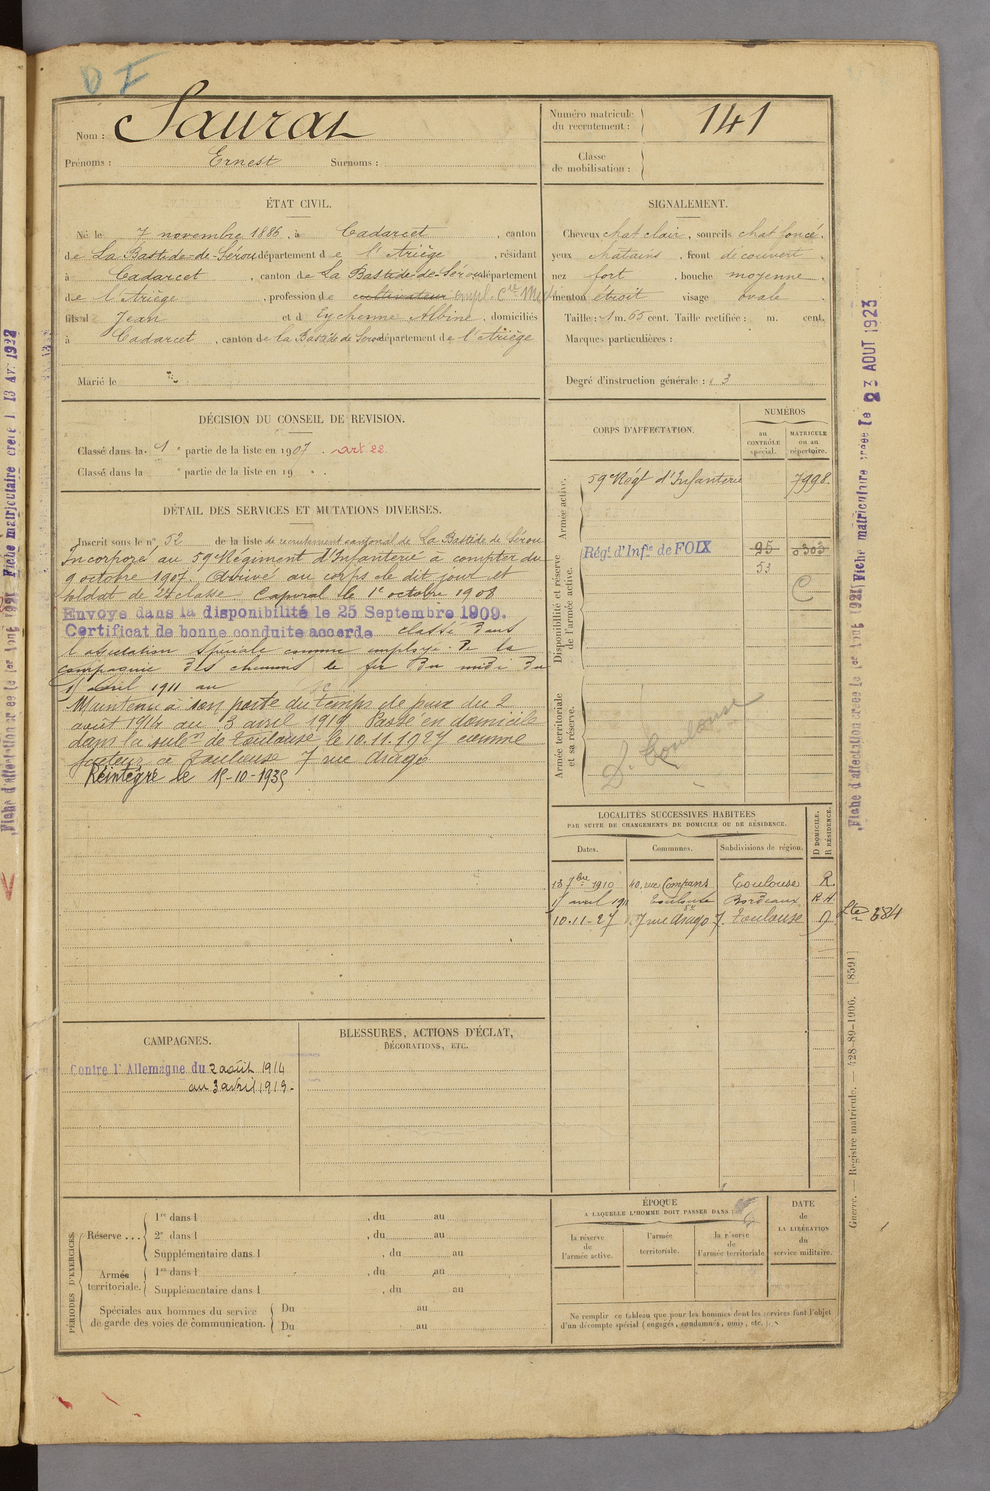 D I
Nom : Saurat
Prénoms : Ernest Surnoms :
Numéro matricule du recrutement : 141
Classe de mobilisation :
ÉTAT CIVIL.
Né le 7 novembre 1886, à Cadarcet, canton
de La Bastide-de-Sérou département de l'Ariège, résidant
à Cadarcet, canton de La Bastide-de-Sérou département
de l'Ariège, profession de cultivateur empl. Cie Midi
fils d Jean et d Eychenne Albine, domiciliés
à Cadarcet, canton de la Bastide de Sérou département de l'Ariège
Marié le
SIGNALEMENT.
Cheveux chat clair, sourcils chat foncé.
yeux chatains, front découvert.
nez fort, bouche moyenne.
menton étroit visage ovale.
Taille : 1 m. 65 cent. Taille rectifiée : m. cent.
Marques particulières :
Degré d'instruction générale : 3
DÉCISION DU CONSEIL DE REVISION.
Classé dans la 1e partie de la liste en 1907. art 22.
Classé dans la e partie de la liste en 19 .
DÉTAIL DES SERVICES ET MUTATIONS DIVERSES.
Inscrit sous le n° 52 de la liste de recrutement cantonal de La Bastide de Sérou
Incorporé au 59e Régiment d'Infanterie à compter du
9 octobre 1907. Arrivé au corps le dit jour et
soldat de 2e classe. Caporal le 1er octobre 1908
Envoyé dans la disponibilité le 25 Septembre 1909.
Certificat de bonne conduite accordé classé dans
l'affectation spéciale comme employé de la
compagnie des chemins de fer du midi du
1 avril 1911 au
Maintenu à son poste du temps de paix du 2
août 1914 au 3 avril 1919 Passé en domicile
dans la subon de Toulouse le 10.11.1927 comme
facteur à Toulouse 7 rue Arago
Réintégré le 15-10-1935
CORPS D'AFFECTATION.
NUMÉROS
au CONTRÔLE spécial.
MATRICULE ou au répertoire.
Armée active.
59e Régt d'Infanterie 7998.
Disponibilité et réserve de l'armée active.
Régt d'Infie de FOIX 95 0303
53
C
Armée territoriale et sa réserve.
S. Toulouse
LOCALITÉS SUCCESSIVES HABITÉES
PAR SUITE DE CHANGEMENTS DE DOMICILE OU DE RÉSIDENCE.
Dates. Communes. Subdivisions de région. D DOMICILE. R RÉSIDENCE.
13 7bre 1910 40, rue Compans Toulouse R.
avril 191 Toulouse Bordeaux R.
10-11-27 7 rue Arago Toulouse D
384
CAMPAGNES.
Contre l'Allemagne du 2 août 1914
au 3 avril 1919.
BLESSURES, ACTIONS D'ÉCLAT,
DÉCORATIONS, ETC.
PÉRIODES D'EXERCICES.
Réserve ... 1re dans l , du au
2e dans l , du au
Supplémentaire dans l , du au
Armée territoriale. 1re dans l , du au
Supplémentaire dans l , du au
Spéciales aux hommes du service de garde des voies de communication. Du au
Du au
ÉPOQUE
A LAQUELLE L'HOMME DOIT PASSER DANS :
la réserve de l'armée active.
l'armée territoriale.
la réserve de l'armée territoriale
DATE de LA LIBÉRATION du service militaire.
Ne remplir ce tableau que pour les hommes dont les services font l'objet
d'un décompte spécial (engagés, condamnés, omis, etc.).
Fiche matriculaire créée le 23 AOUT 1923
Fiche d'affectation créée le 1er Août 1921
Guerre. — Registre matricule. — 428-89-1906. [8591]
Fiche matriculaire créée l 13 Av. 1932
Fiche d'affectation créée le 1er Août 1921